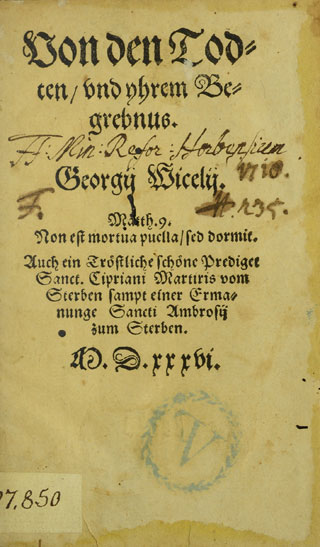 Von den Tod-
ten/ vnd yhrem Be-
grebnus.
FF: Min: Refor: Herbipolium
Georgij Wicelij. 1710.
F. H. 235.
Matth. 9.
Non est mortua puella/ sed dormit.
Auch ein Tröstliche schöne Prediget
Sanct. Cipriani Martiris vom
Sterben sampt einer Erma-
nunge Sancti Ambrosij
zum Sterben.
M. D. xxxvi.
V
97.850